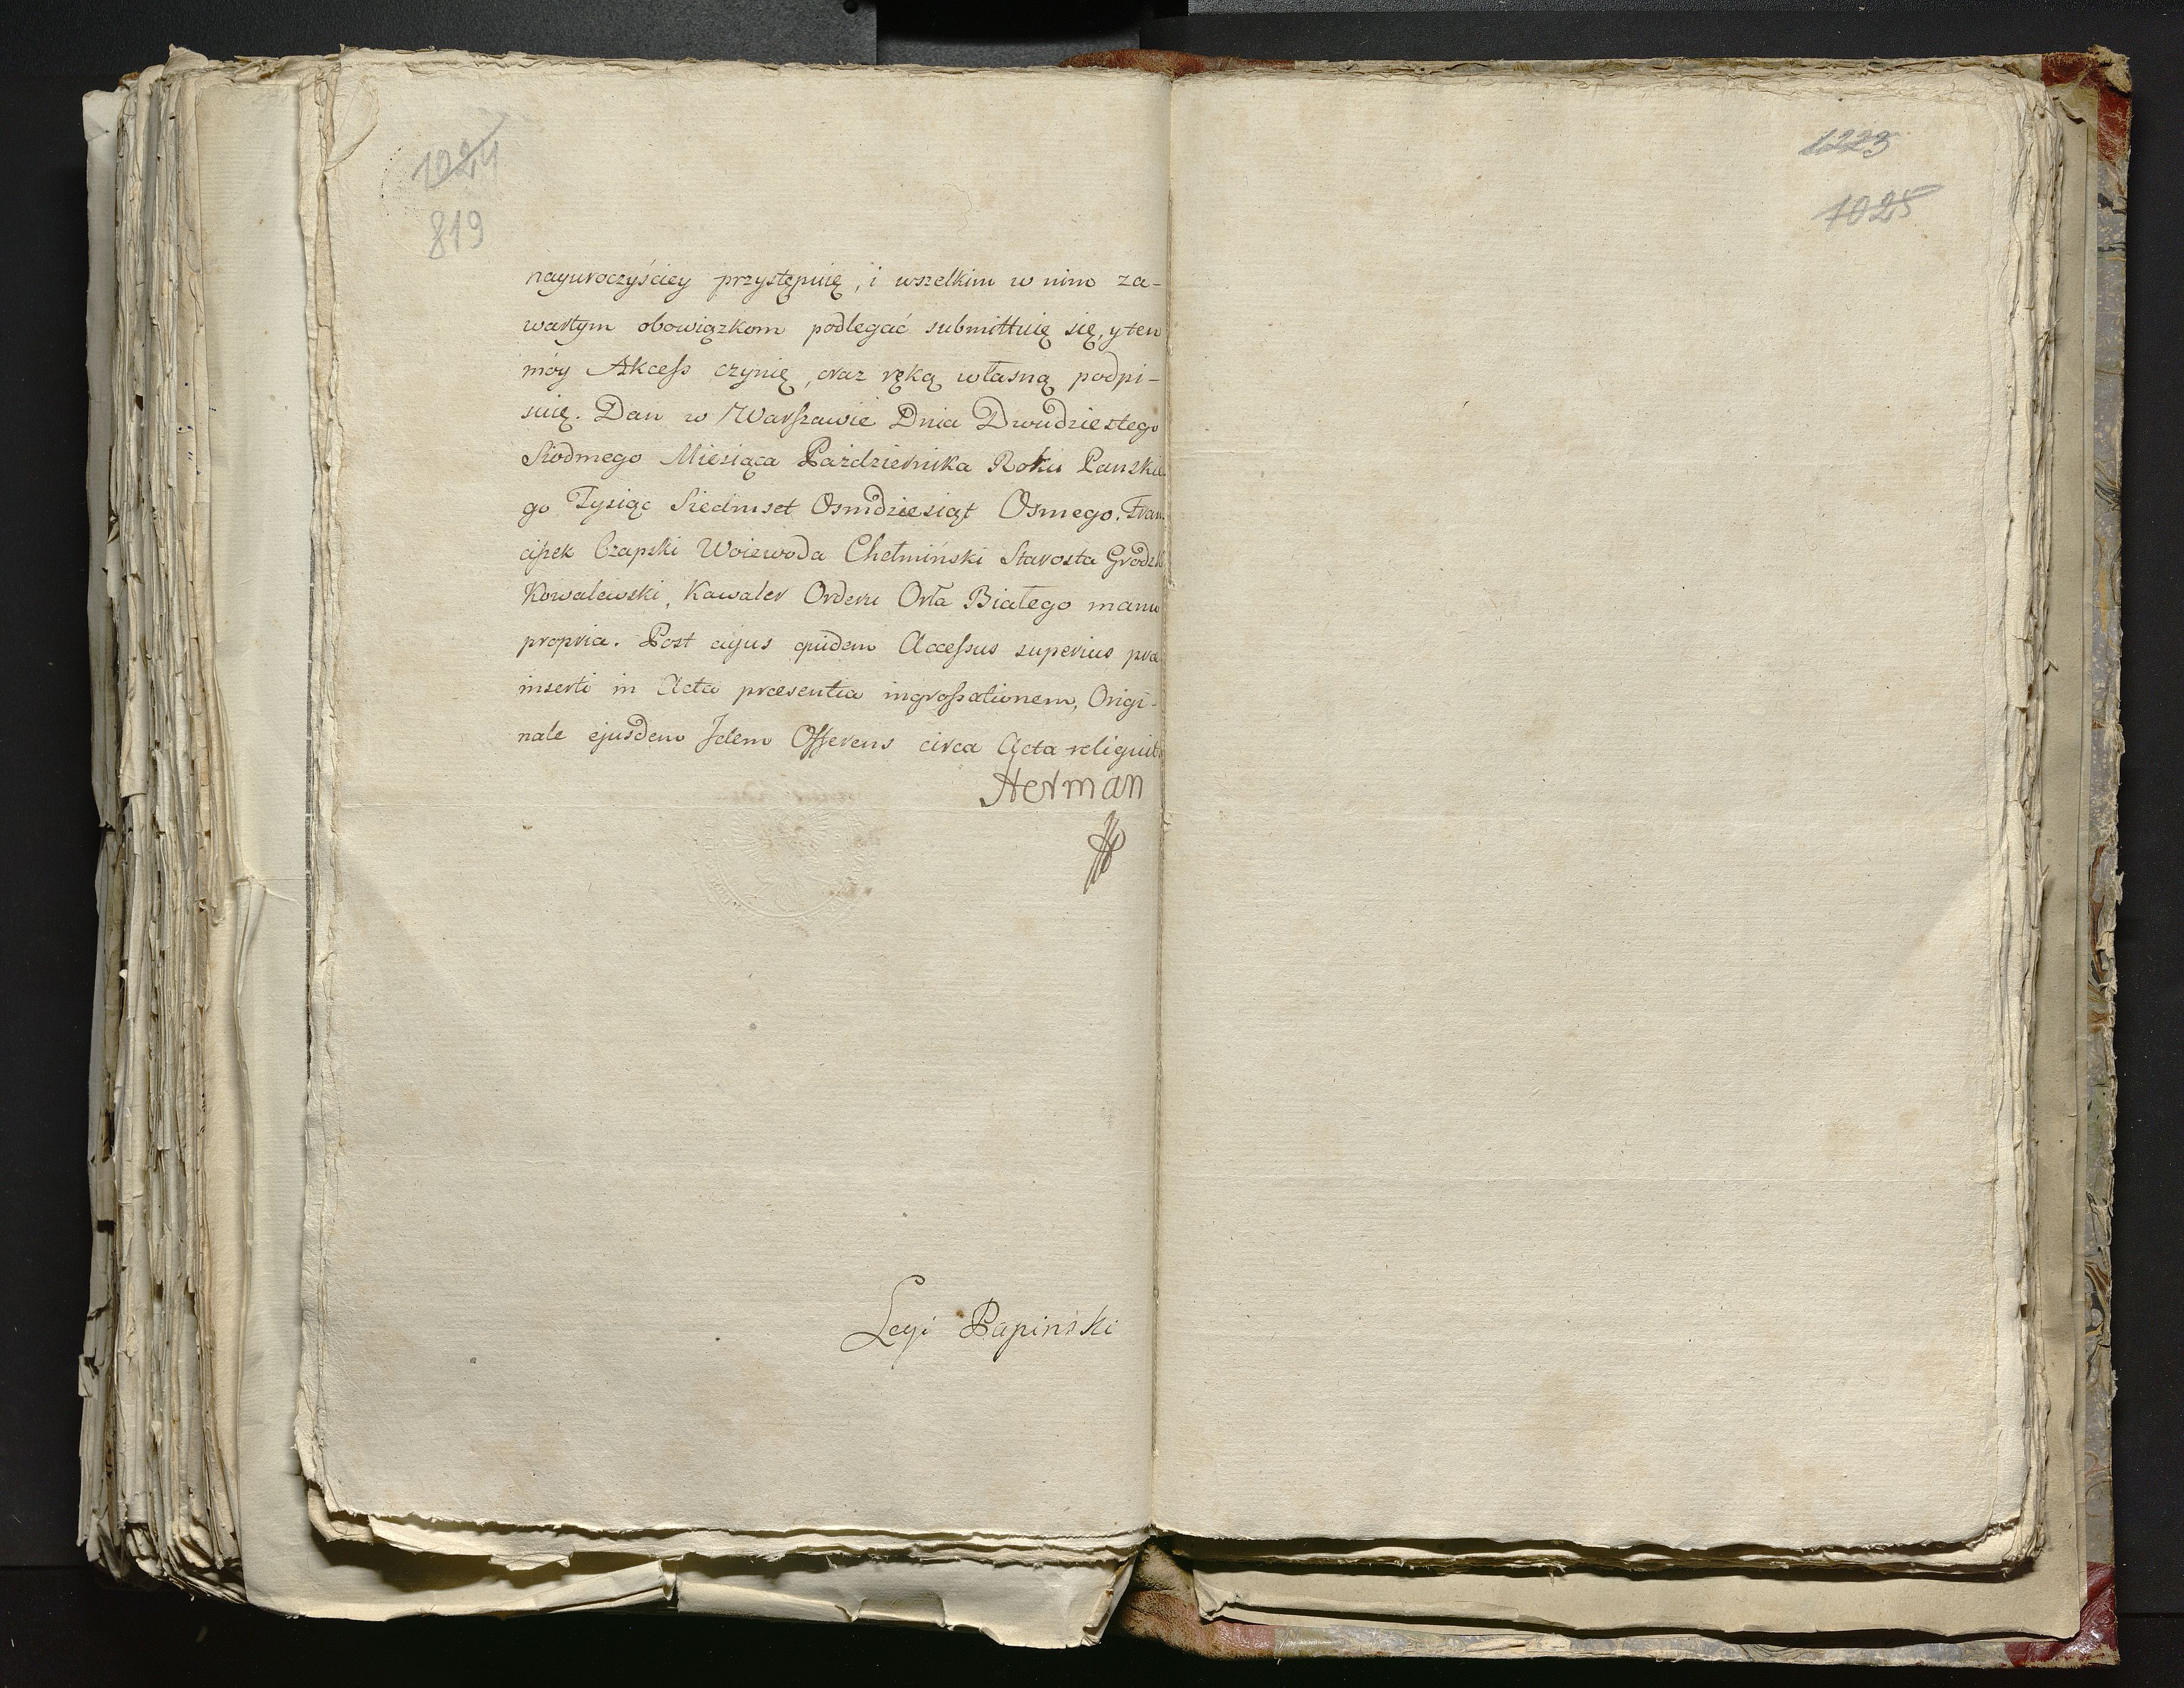 1024
819
nayuroczyściey przystępuię, i wszelkim w nim za-
wartym obowiązkom podlegać submittuię się, y ten
móy Akcess czynię, oraz ręką własną podpi-
suię. Dan w Warszawie Dnia Dwudziestego
Siodmego Miesiąca Pażdziernika Roku Panskie
go Tysiąc Siedmset Osmdziesiąt Osmego. Fran
ciszek Czapski Woiewoda Chełmiński Starosta Grodzki
Kowalewski, Kawaler Orderu Orła Białego manu
propria. Post cujus quidem Accessus superius præ
inserti in Acta præsentia ingrossationem, Origi-
nale ejusdem Idem Offerens circa Acta reliquit
Herman
Legi Papinski
1223
1025